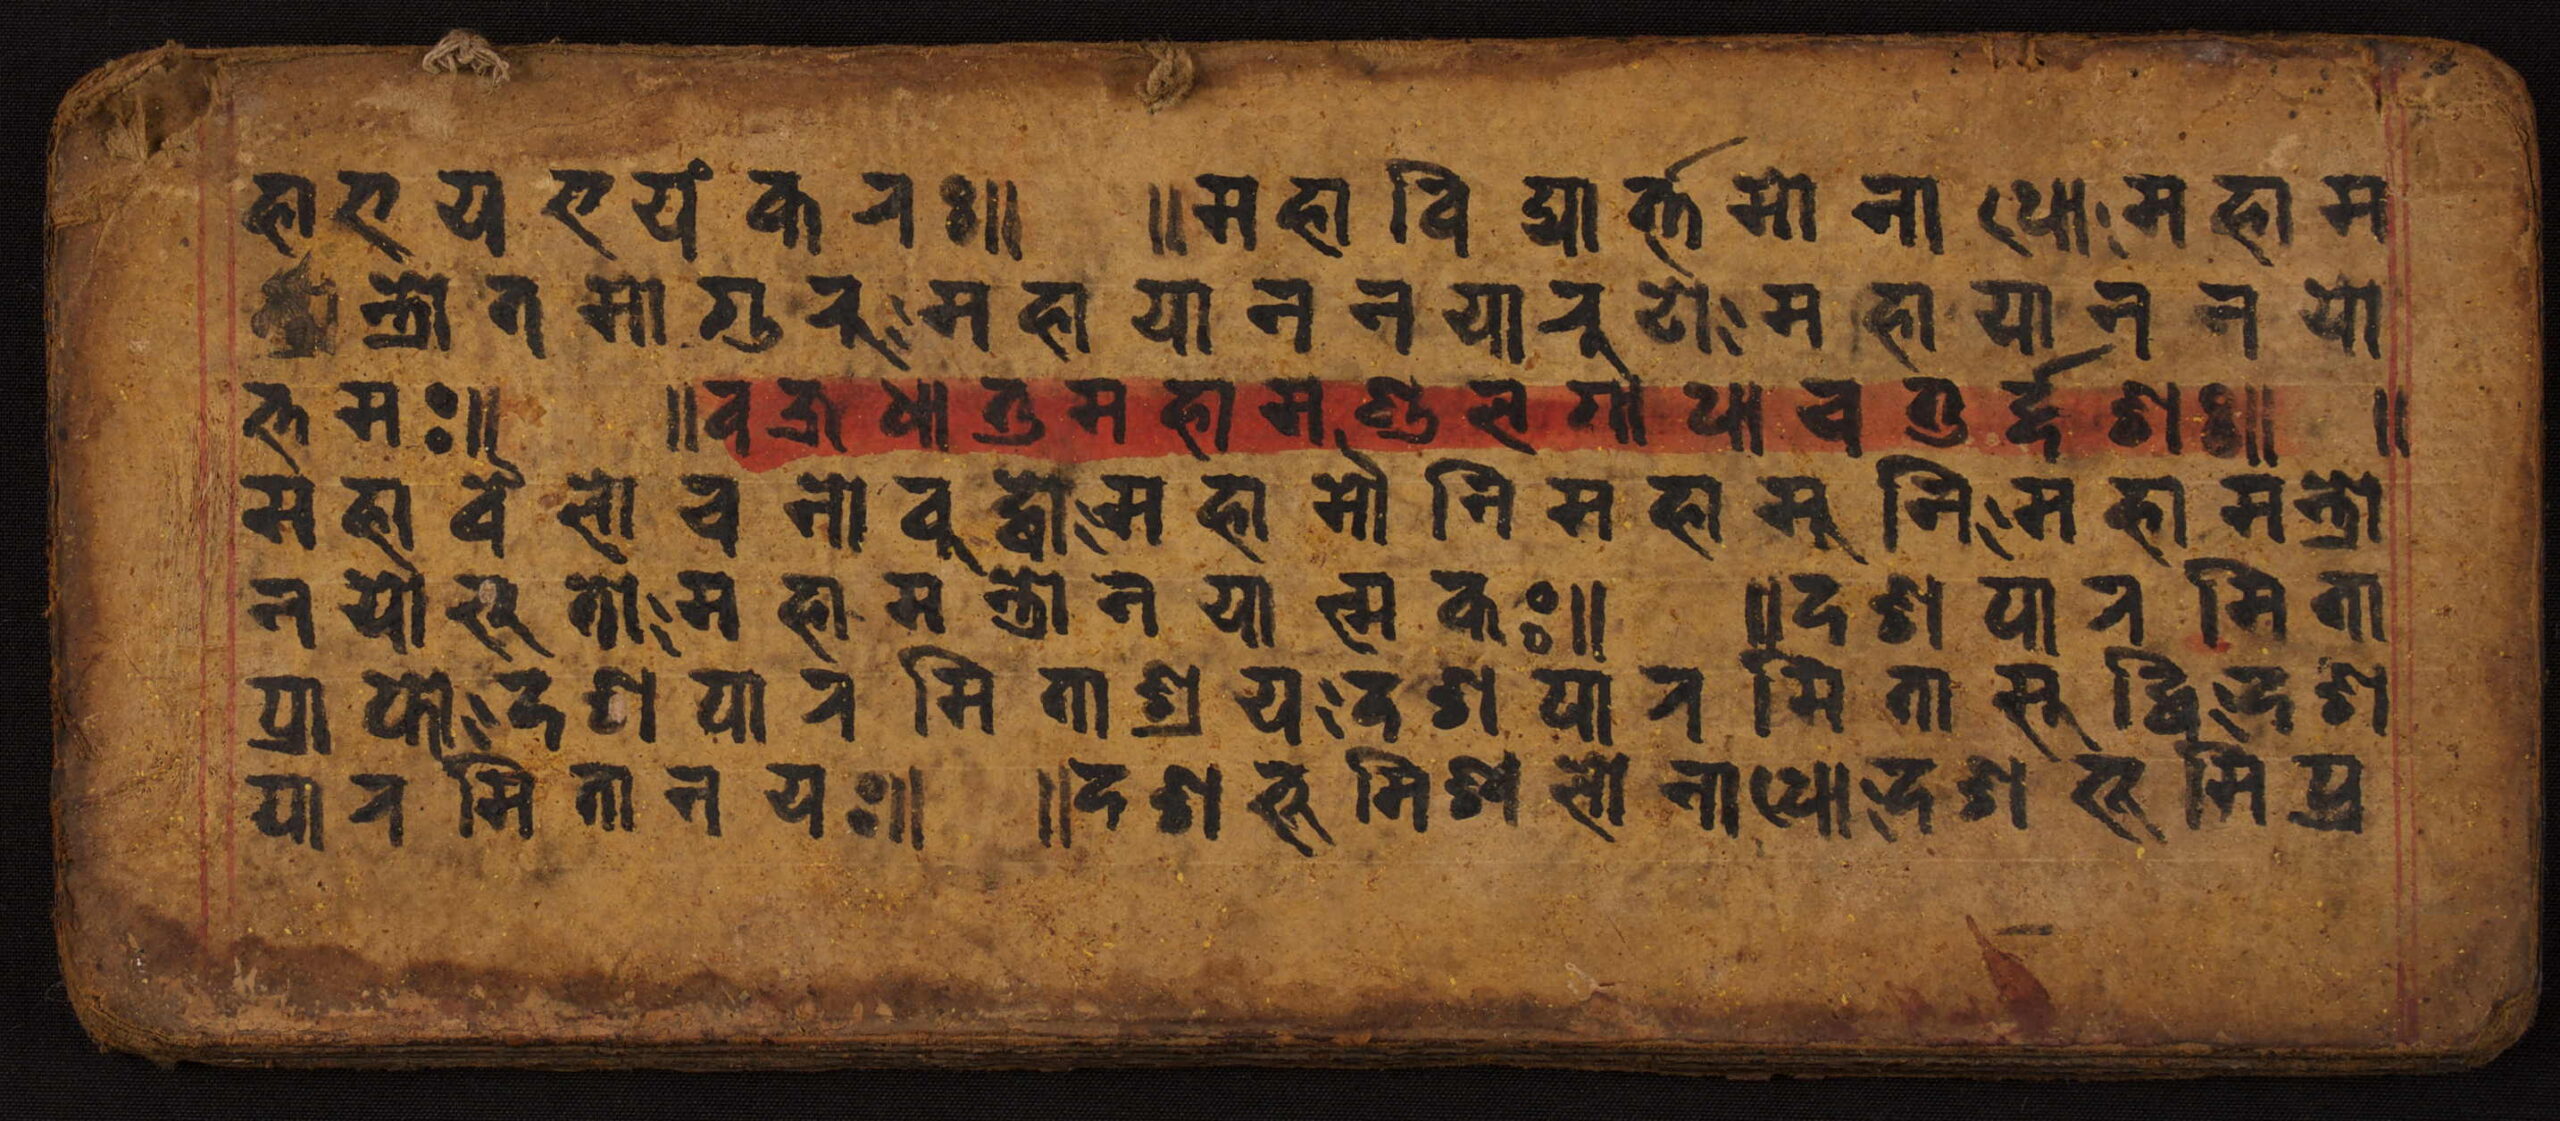 हाभयभयंकरः॥ ॥महाविद्यार्त्तमोनाथो,महाम
न्त्रोतमोगुरू,महायाननयारूढो,महायाननयो
त्तमः॥ ॥वज्रधातुमहामण्डलगाथाचतुर्द्दशः॥ ॥
महावैलोचनोबूद्धो,महामौनिमहामूनि,महामन्त्रो
नयोभूतो,महामन्त्रोनयात्मकः॥ ॥दशपारमिता
प्राप्तो,दशपारमिताश्रय,दशपारमितासूद्धि,दश
पारमितानयः॥ ॥दशभूमिश्वलोनाथो,दशभूमिप्र